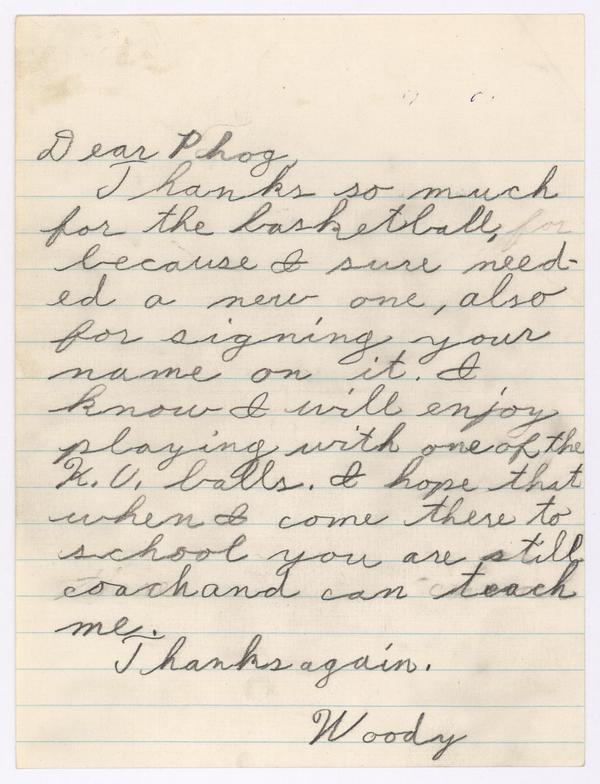 Dear Phog,
Thanks so much
for the basketball, for
because I sure need-
ed a new one, also
for signing your
name on it. I
know I will enjoy
playing with one of the
K.U. balls. I hope that
when I come there to
school you are still
coach and can teach
me.
Thanks again.
Woody